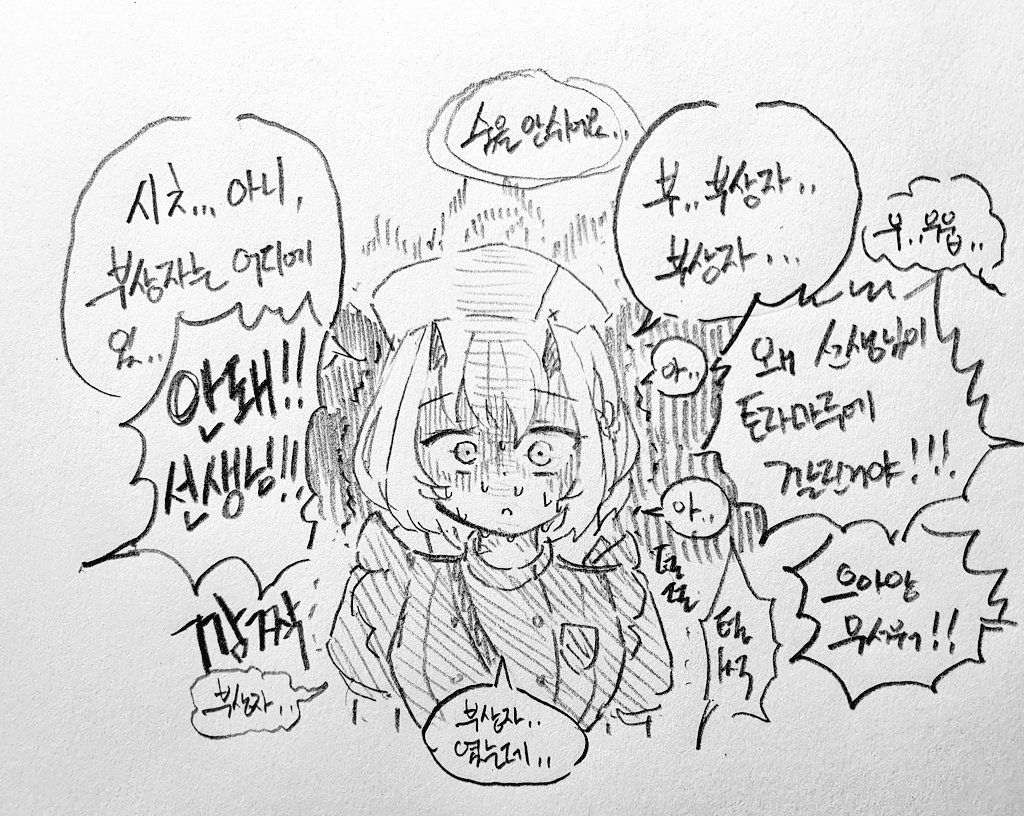 숨을 안쉬어요..
시ㅊ... 아니,
부상자는 어디에
요..
부.. 부상자..
부상자...
우..우웁..
안돼!!
선생님!!
아..
왜 선생님이
토라마루에
깔린거야!!!
아..
깜짝
털썩
으아앙
무서워!!
부상자..
부상자..
였는데..